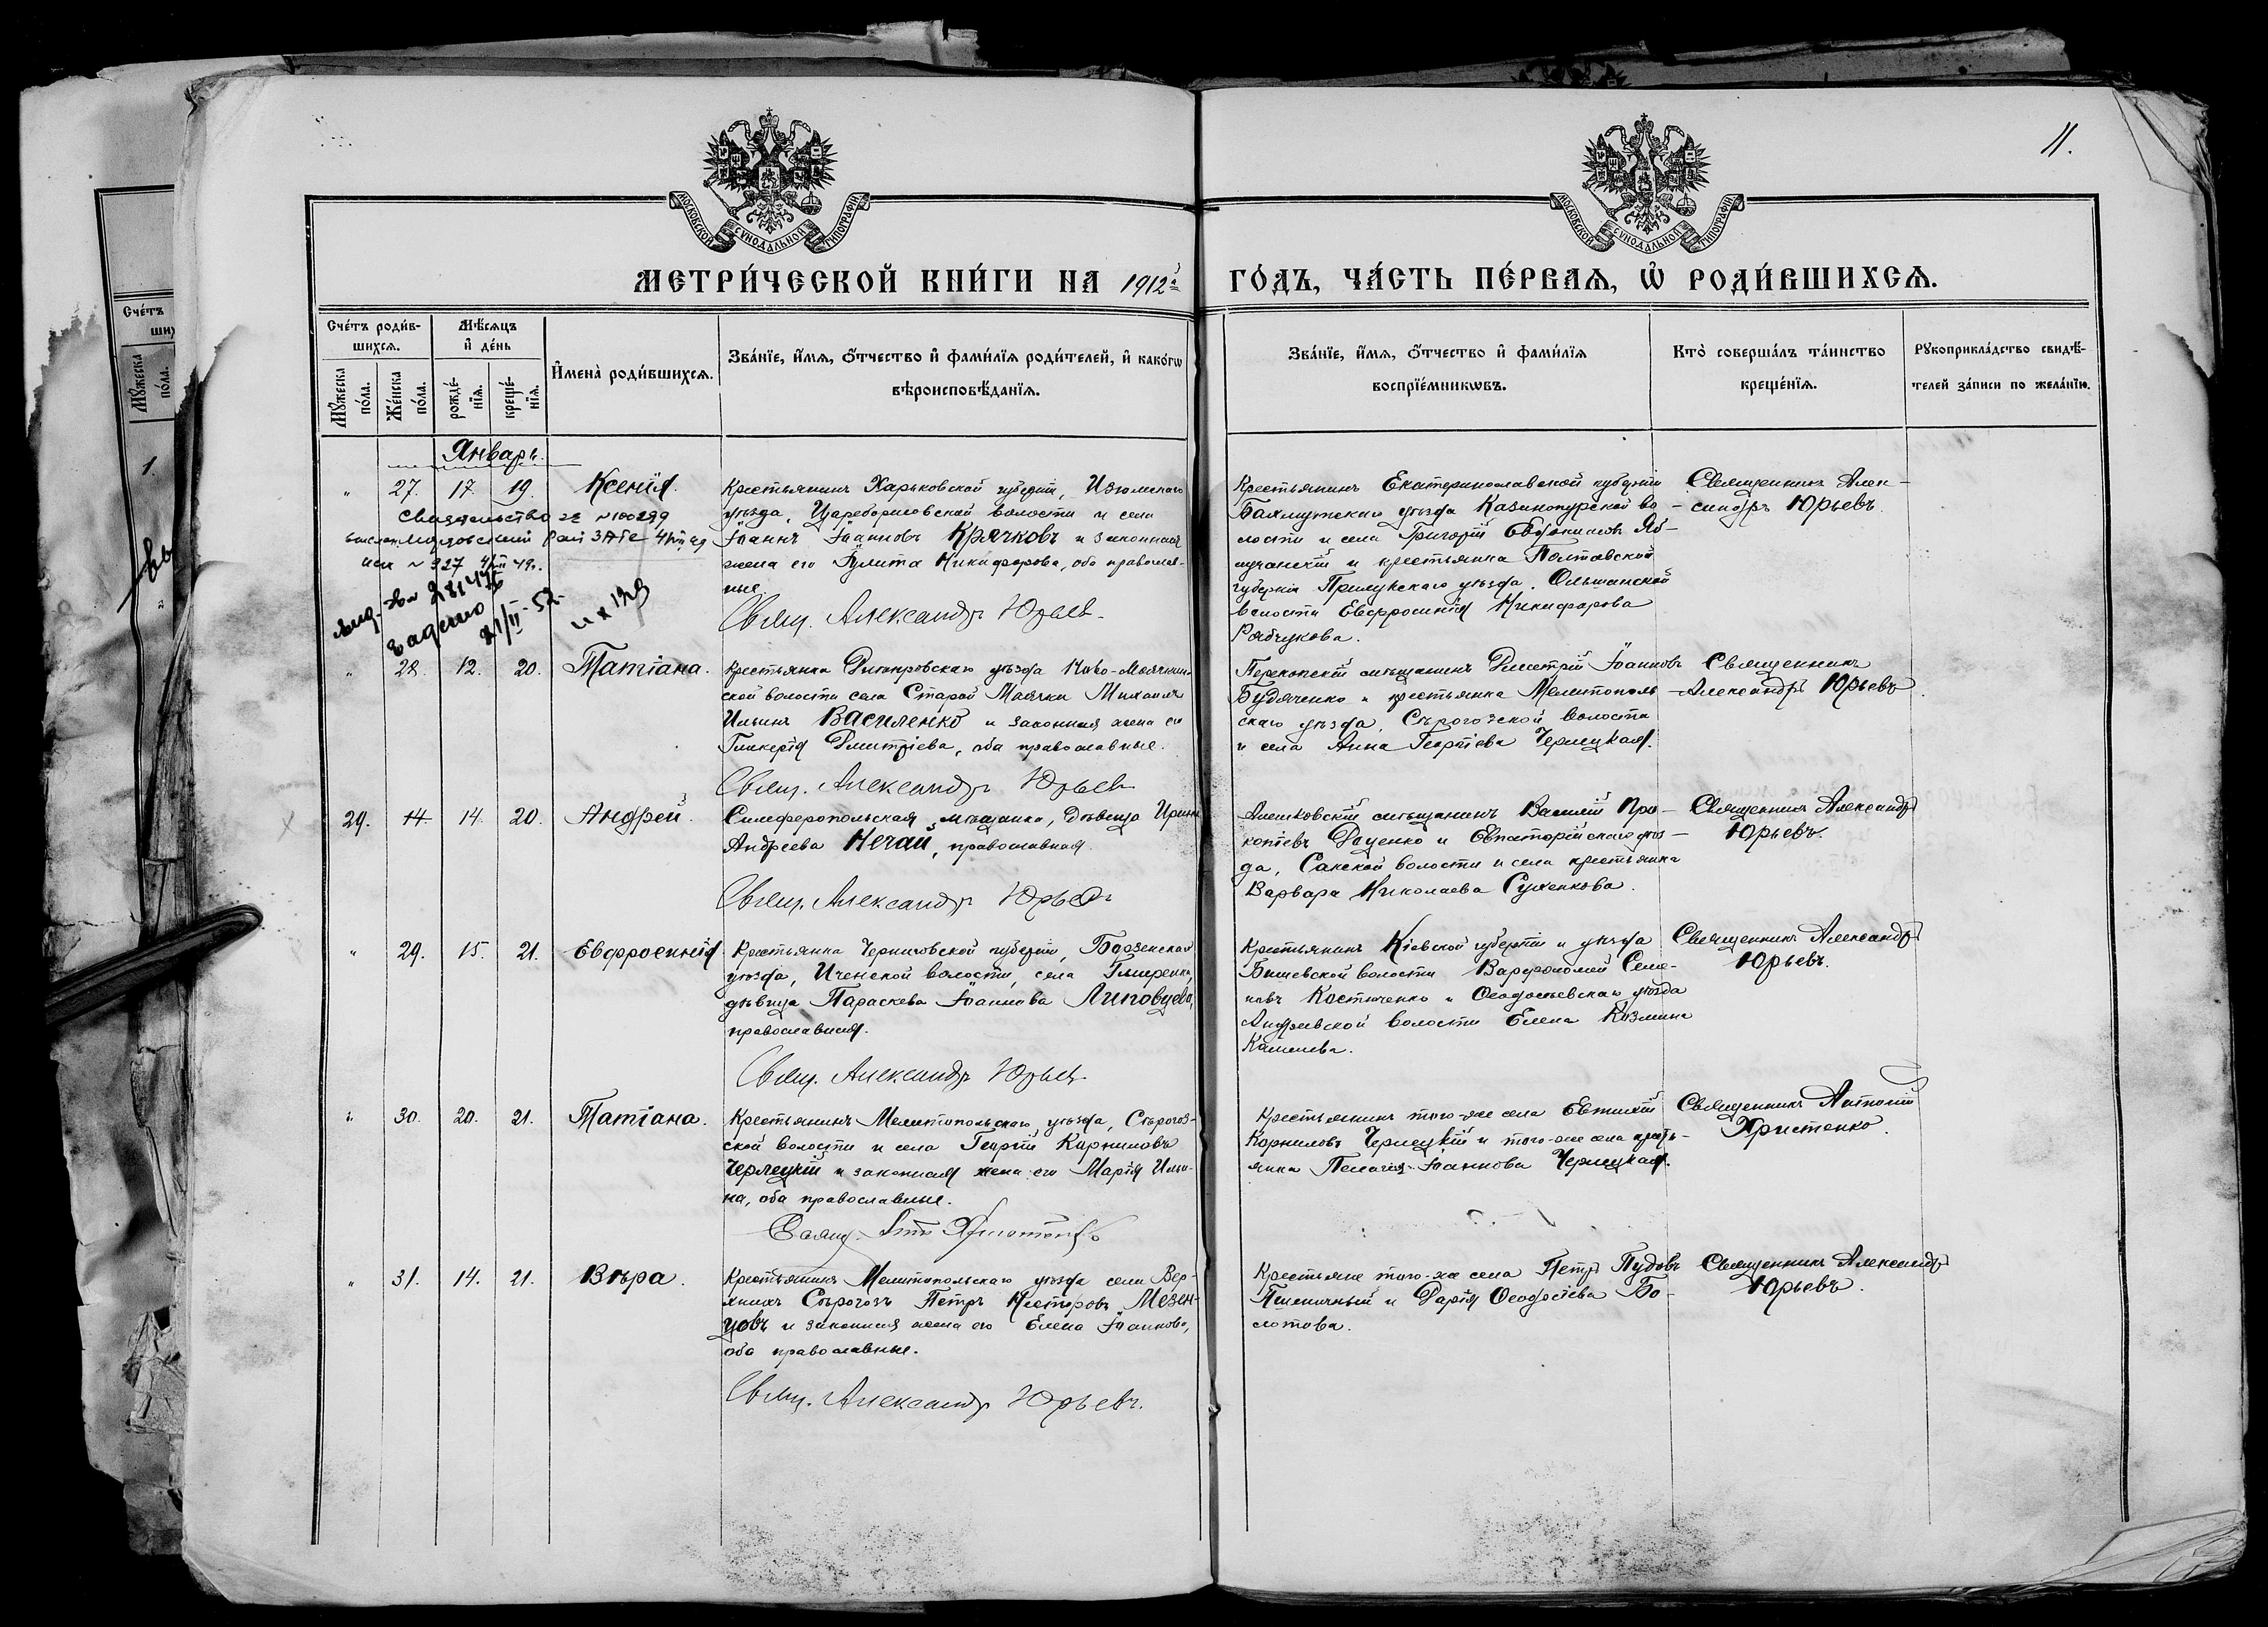 11.
МОСКОВСКОЙ СѴНОДАЛЬНОЙ ТИПОГРАФІИ
МОСКОВСКОЙ СѴНОДАЛЬНОЙ ТИПОГРАФІИ
МЕТРИ́ЧЕСКОЙ КНИ́ГИ НА 1912й ГО́ДЪ, ЧА́СТЬ ПЕ́РВАѦ, Ѡ РОДИ́ВШИХСѦ.
Сче́тъ роди́в-
шихсѧ.
Мѣ́сѧцъ
и҆ де́нь
Мꙋ́жеска
по́ла.
Же́нска
по́ла.
рожде́-
нїѧ.
креще́-
нїѧ.
И҆мена̀ роди́вшихсѧ.
Зва́нїе, и҆́мѧ, ѻ҆́тчество и҆ фами́лїѧ роди́телей, и҆ како́гѡ
вѣроисповѣ́данїѧ.
Зва́нїе, и҆́мѧ, ѻ҆́тчество и҆ фами́лїѧ
воспрїе́мникѡвъ.
Кто̀ соверша́лъ та́инство
креще́нїѧ.
Рꙋкоприкла́дство свидѣ́-
телей за́писи по жела́нїю.
Январь.
" 27. 17. 19. Ксенія.
Крестьянинъ Харьковской губерніи, Изюмскаго
уѣзда, Цареборисовской волости и села
Іоаннъ Іоанновъ Крячковъ и законная
жена его Іулита Никифорова, оба православ-
ные.
Свящ. Александръ Юрьевъ
Свидетельство
28144
21/II-52
Крестьянинъ Екатеринославской губерніи
Бахмутскаго уѣзда во-
лости и села Григорій Яб-
лучанскій и крестьянка Полтавской
губерніи Прилукскаго уѣзда, Ольшанской
волости Евфросинія Никифорова
Рябчукова.
Священникъ Алек-
сандръ Юрьевъ
" 28. 12. 20. Татіана.
Крестьянка Днѣпровскаго уѣзда Ново-Маячкин-
ской волости села Старой Маячки Михаилъ
Ильинъ Василенко и законная жена его
Гликерія Дмитріева, оба православные.
Свящ. Александръ Юрьевъ
Перекопскій мѣщанинъ Дмитрій Іоанновъ
Будяченко и крестьянка Мелитополь-
скаго уѣзда, Сѣрогозской волости
и села Анна Георгіева Черлецкая.
Священникъ
Александръ Юрьевъ
29. 14. 14. 20. Андрей.
Симферопольская мѣщанка, Дѣвица Ирина
Андреева Нечай, православная.
Свящ. Александръ Юрьевъ
Алешковскій мѣщанинъ Василій Про-
копіевъ Доценко и Евпаторійскаго уѣз-
да, Сакской волости и села крестьянка
Варвара Николаева Суженкова.
Священникъ Александръ
Юрьевъ.
" 29. 15. 21. Евфросинія
Крестьянка Черниговской губерніи, Борзенскаго
уѣзда, Иченской волости, села
дѣвица Параскева Іоаннова Липовцева,
православная.
Свящ. Александръ Юрьевъ
Крестьянинъ Кіевской губерніи и уѣзда
Бышевской волости Варфоломей Семе-
новъ Костюченко и Ѳеодосіевскаго уѣзда
Андреевской волости Елена Козмина
Камнева.
Священникъ Александръ
Юрьевъ.
" 30. 20. 21. Татіана.
Крестьянинъ Мелитопольскаго уѣзда, Сѣрогоз-
ской волости и села Георгій Корниловъ
Черлецкій и законная жена его Марія Ильи-
на, оба православные.
Свящ. Ант. Христенко
Крестьянинъ того-же села Евтихій
Корниловъ Черлецкій и того-же села кресть-
янка Пелагія Іоаннова Черлецкая.
Священникъ Антоній
Христенко.
" 31. 14. 21. Вѣра.
Крестьянинъ Мелитопольскаго уѣзда села Вер-
хнихъ Сѣрогозъ Петръ Несторовъ Мезен-
цовъ и законная жена его Елена Іоаннова,
оба православные.
Свящ. Александръ Юрьевъ.
Крестьяне того-же села Петръ Пудовъ
Пшеничный и Дарія Ѳеодосіева Бо-
лотова.
Священникъ Александръ
Юрьевъ.